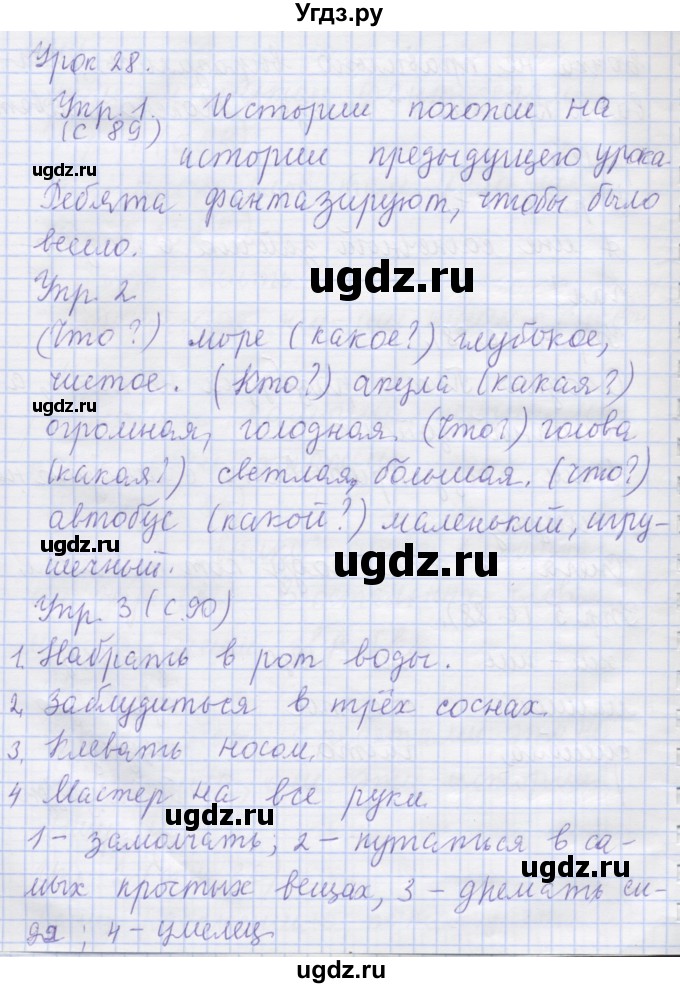 Угдз.ру
Урок 28.
Упр. 1. Истории похожи на
(с 89)
истории предыдущего урока.
Ребята фантазируют, чтобы было
весело.
ugdz.ru
ugdz.ru
Упр. 2
(Что?) море (какое?) глубокое,
чистое. (Кто?) акула (какая?)
ugdz.ru
огромная, голодная. (Что?) голова
(какая?) светлая, большая. (что?)
автобус (какой?) маленький, игру-
ugdz.ru
ugdz.ru
шечный.
Упр. 3 (с. 90)
1. Набрать в рот воды.
2. Заблудиться в трёх соснах.
3. Клевать носом.
4 Мастер на все руки.
ugdz.ru
1 - замолчать; 2 - путаться в са-
мых простых вещах, 3 - дремать си-
дя; 4 - умелец
ugdz.ru
ugdz.ru